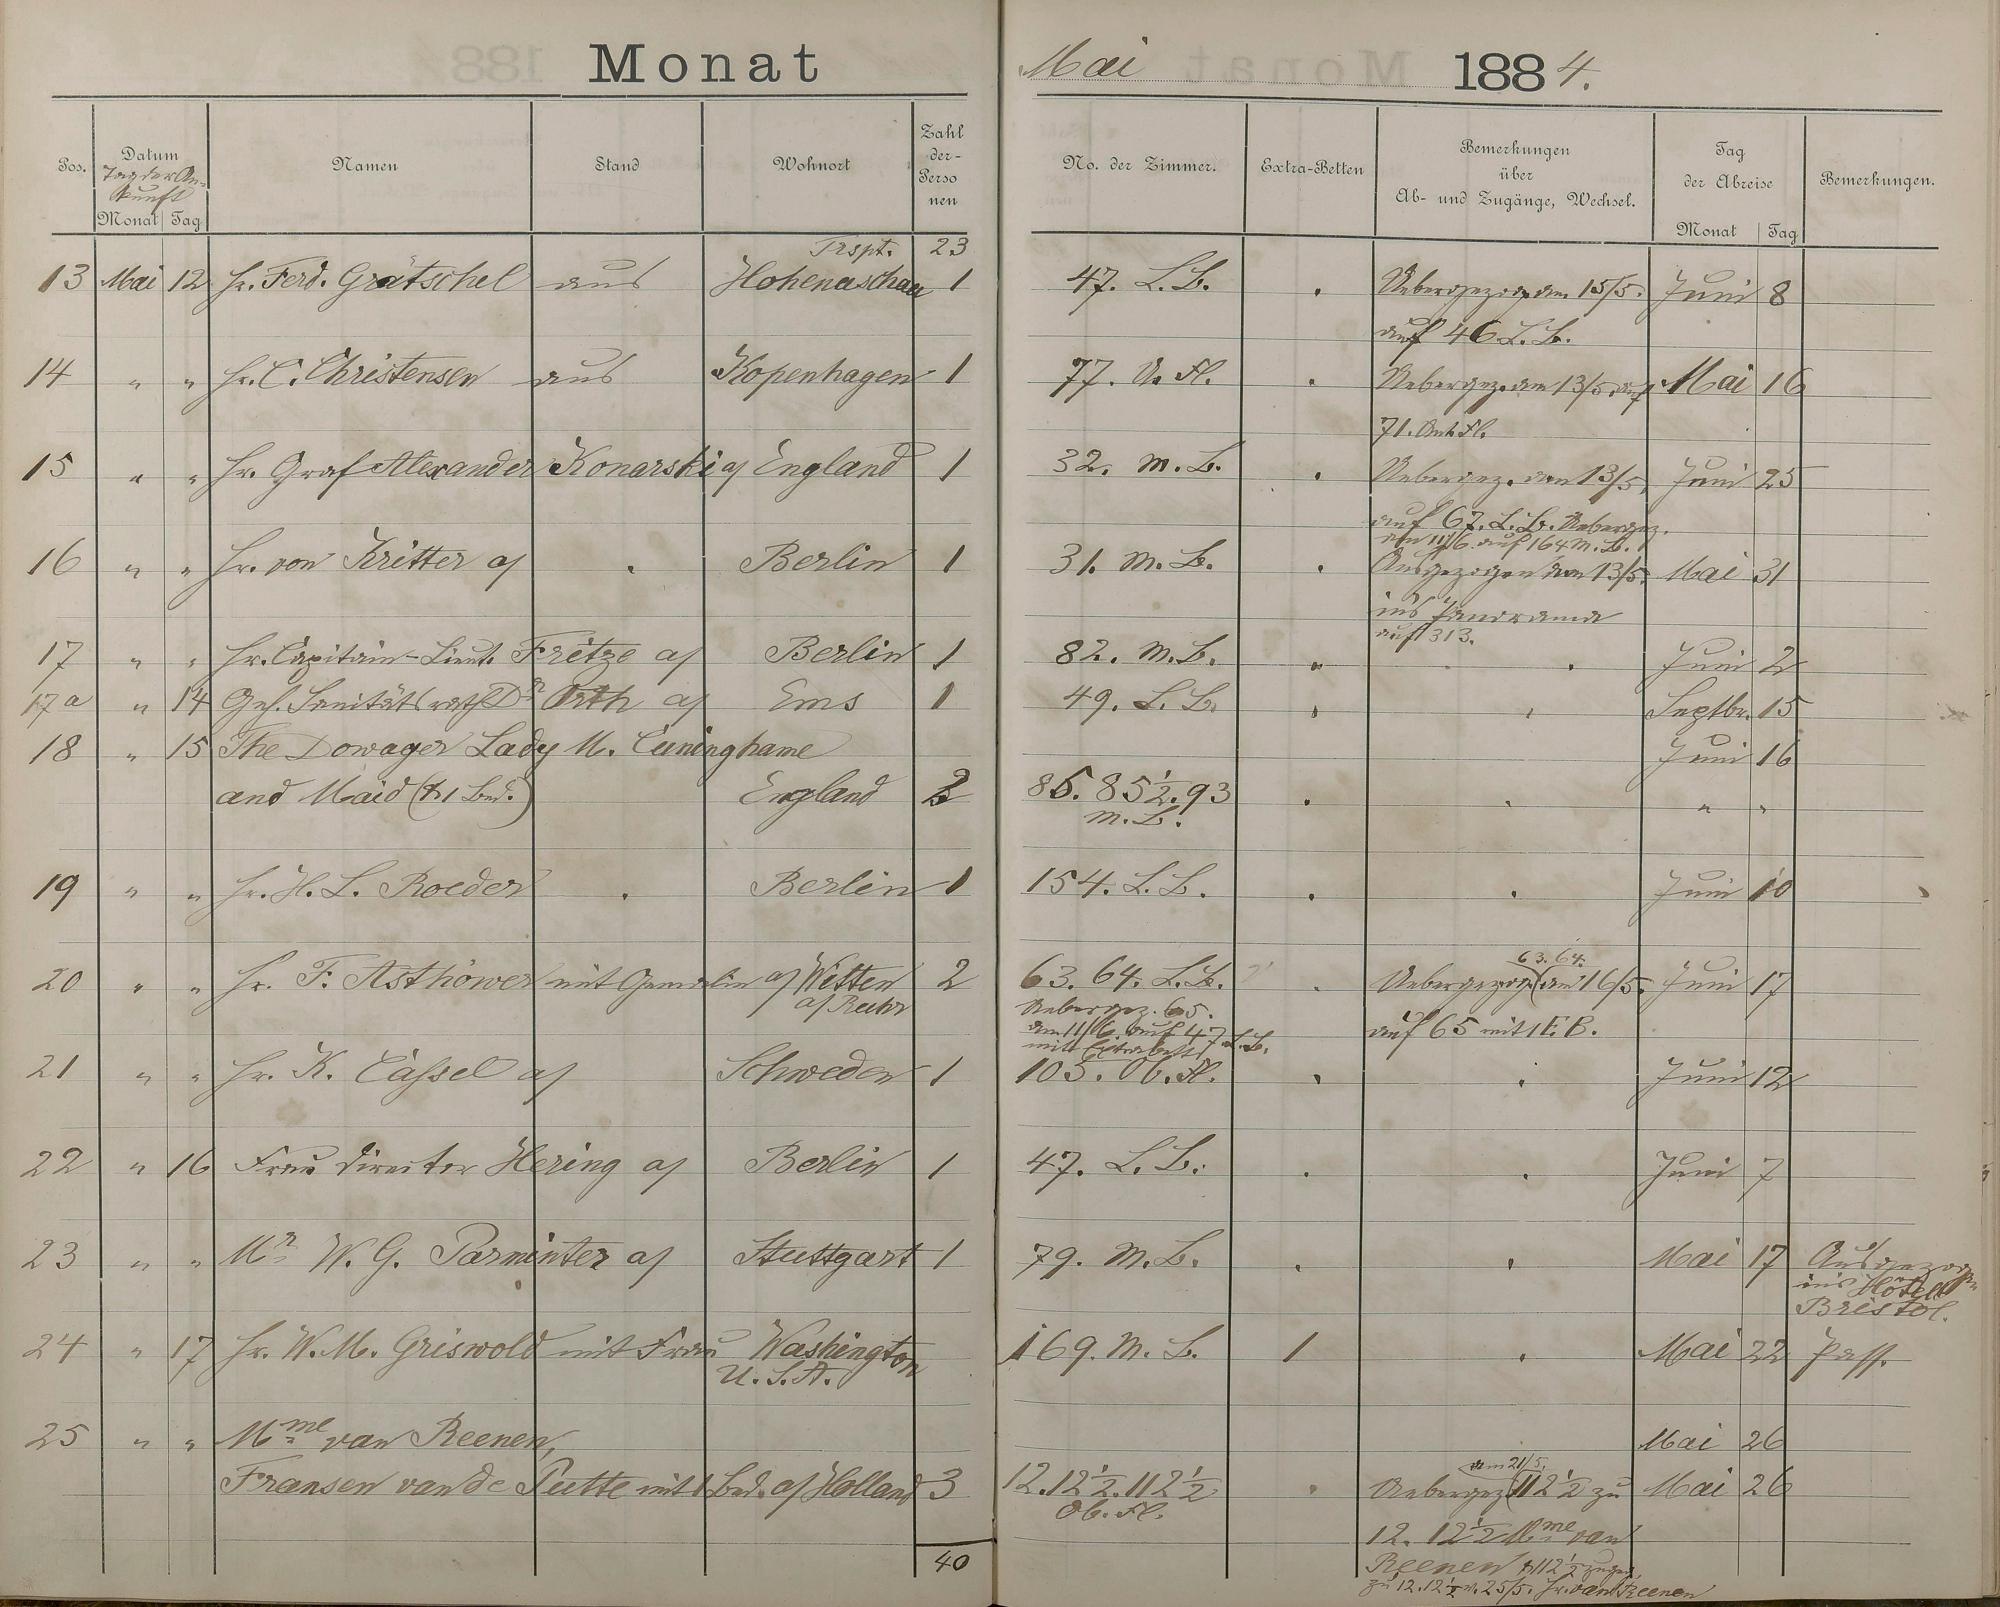 Monat Mai 1884.
Pos. Datum Namen Stand Wohnort Zahl der Personen No. der Zimmer. Extra-Betten Bemerkungen über Ab- und Zugänge, Wechsel. Tag der Abreise Bemerkungen.
Tag der Ankunft
Monat Tag Monat Tag
Trspt. 23
13 Mai 12 Hr. Ferd. Grätschel aus Hohenaschau 1 47. L. B. Uebergezogen am 15/5. Juni 8
auf 46 L. B.
14 " " Hr. C. Christensen aus Kopenhagen 1 77. U. Fl. Uebergez. am 13/5. auf Mai 16
71. Unt. Fl.
15 " " Hr. Graf Alexander Konarski a/ England 1 32. M. B. Uebergez. am 13/5. Juni 25
auf 67. L. B. Uebergez.
am 11/6. auf 164 M. B.
16 " " Hr. von Kritter a/ Berlin 1 31. M. B. Ausgezogen am 13/5. Mai 31
ins Panorama
auf 313.
17 " " Hr. Capitain-Lieut. Fritze a/ Berlin 1 82. M. B. " Juni 2
17a " 14 Geh. Sanitätsrath Dr Orth a/ Ems 1 49. L. B. Septbr. 15
18 " 15 The Dowager Lady M. Cuninghame Juni 16
and Maid (1 Bed.) England 2 86. 85 1/2. 93 " "
M. B.
19 " " Hr. H. L. Roeder Berlin 1 154. L. B. Juni 10
63. 64.
20 " " Hr. F. Asthöwer mit Gemalin a/ Witten 2 63. 64. L. B. Uebergezog. am 16/5. Juni 17
a/ Ruhr Uebergez. 65. auf 65 mit 1 E. B.
am 11/6. auf 47 L. B.
mit Extrabett
21 " " Hr. K. Cassel a/ Schweden 1 105. Ob. Fl. Juni 12
22 " 16 Frau Director Hering a/ Berlin 1 47. L. B. Juni 7
23 " " Mr W. G. Parminter a/ Stuttgart 1 79. M. B. Mai 17 Ausgezogen
ins Hôtel
Bristol.
24 " 17 Hr. W. M. Griswold mit Frau Washington 169. M. B. 1 Mai 22 Pass.
U. S. A.
25 " " Mme van Reenen, Mai 26
am 21/5.
Fransen van de Putte mit 1 Bed. a/ Holland 3 12. 12 1/2. 112 1/2 Uebergez. 112 1/2 zu Mai 26
Ob. Fl. 12. 12 1/2 Mme van
40 Reenen 112 1/2
zu 12. 12 1/2 25/5. Hr. van Reenen